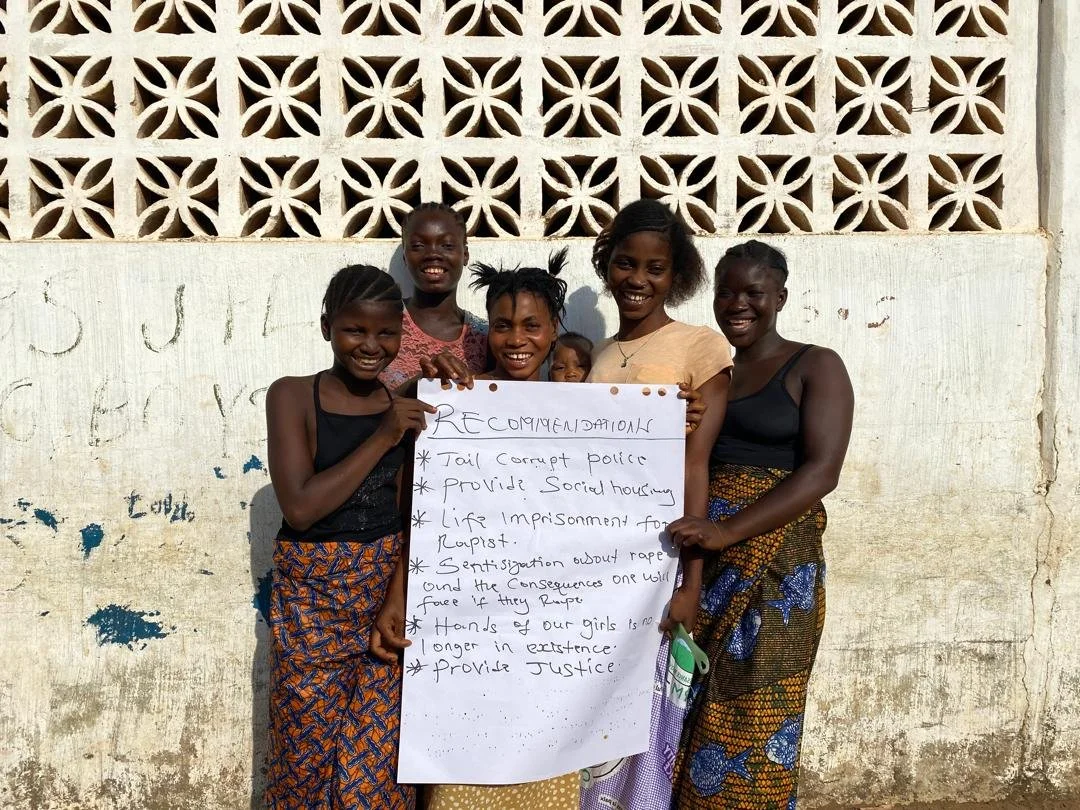 RECOMMENDATIONS
* Jail Corrupt police
* Provide Social housing
* Life Imprisonment for
Rapist.
* Sentisization about rape
and the Consequences one will
face if they Rape
* Hands of our girls is no
longer in existence.
* Provide Justice.